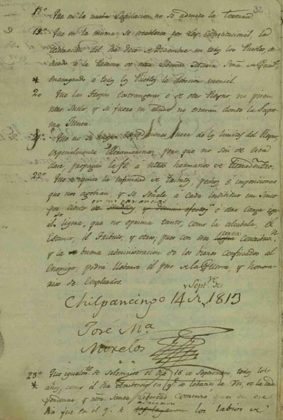 32
18. Que en la nueva Legislacion no se admitira la Tortura
19. Que en la misma se establezca por ley Constitucional la
celebracion del dia doce de Diciembre en todos los Pueblos
encargando a todos los Pueblos la devocion mensual
20. Que las tropas extrangeras o de otro Reyno no pisen
nuestro Suelo, y si fuere en ayuda no estaran donde la Supre
ma Junta
fuera de los limites del Reyno,
especialmente ultramarinas, pero que no son de esta
clase propagar la fe a nuestros hermanos de tierradentro
22. Que se quite la infinidad de tributos, pechos e imposiciones
que nos agobian, y se señale a cada individuo un cinco
por ciento en sus ganancias u otra carga igual
ligera, que no oprima tanto, como la alcabala, el
Estanco, el Tributo, y otros, pues con esta corta contribucion
y la buena administracion de los bienes confiscados al
Enemigo, podrá llevarse el peso de la Guerra, y honora
rios de Empleados
Chilpancingo 14 Septe. de 1813
Jose Ma.
Morelos
23. Que igualmente se solemnise el dia 16 de Septiembre todos los
años, como el dia Aniversario en que se levanto la Voz de la Inde
pendencia, y nuestra Santa Libertad comenzó
dia fue en el q. se los labios